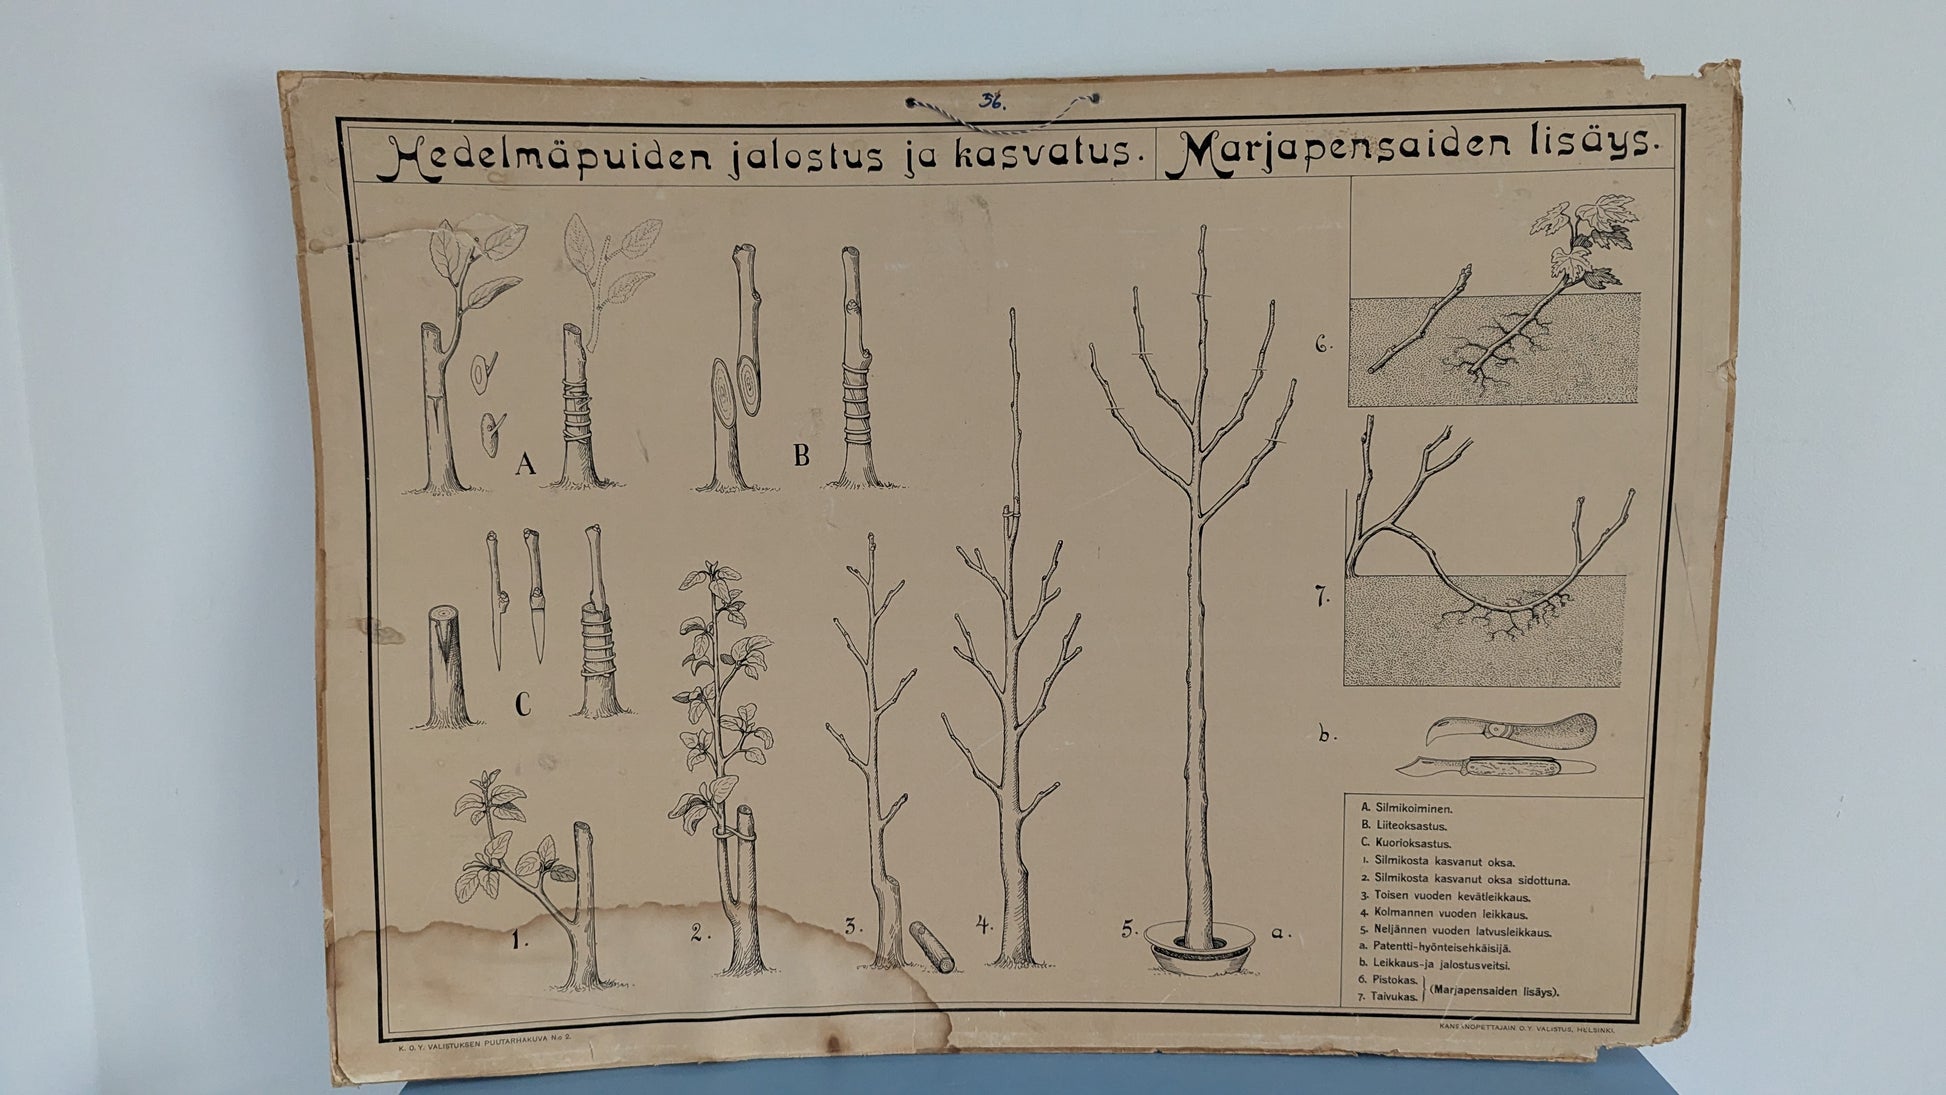 36.
Hedelmäpuiden jalostus ja kasvatus.
Marjapensaiden lisäys.
A
B
C
1.
2.
3.
4.
5.
a.
6.
7.
b.
A. Silmikoiminen.
B. Liiteoksastus.
C. Kuorioksastus.
1. Silmikosta kasvanut oksa.
2. Silmikosta kasvanut oksa sidottuna.
3. Toisen vuoden kevätleikkaus.
4. Kolmannen vuoden leikkaus.
5. Neljännen vuoden latvusleikkaus.
a. Patentti-hyönteisehkäisijä.
b. Leikkaus-ja jalostusveitsi.
6. Pistokas.
7. Taivukas.
(Marjapensaiden lisäys).
K. O. Y. VALISTUKSEN PUUTARHAKUVA N:o 2.
KANSANOPETTAJAIN O. Y. VALISTUS, HELSINKI.